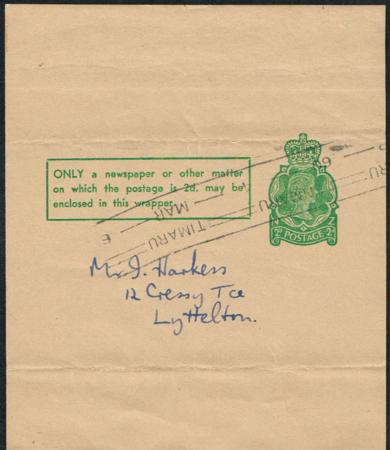 ONLY a newspaper or other matter
on which the postage is 2d. may be
enclosed in this wrapper.
TIMARU
MAR
N Z
2d POSTAGE 2d
Mr J. Harkess
12 Cressy Tce
Lyttelton.